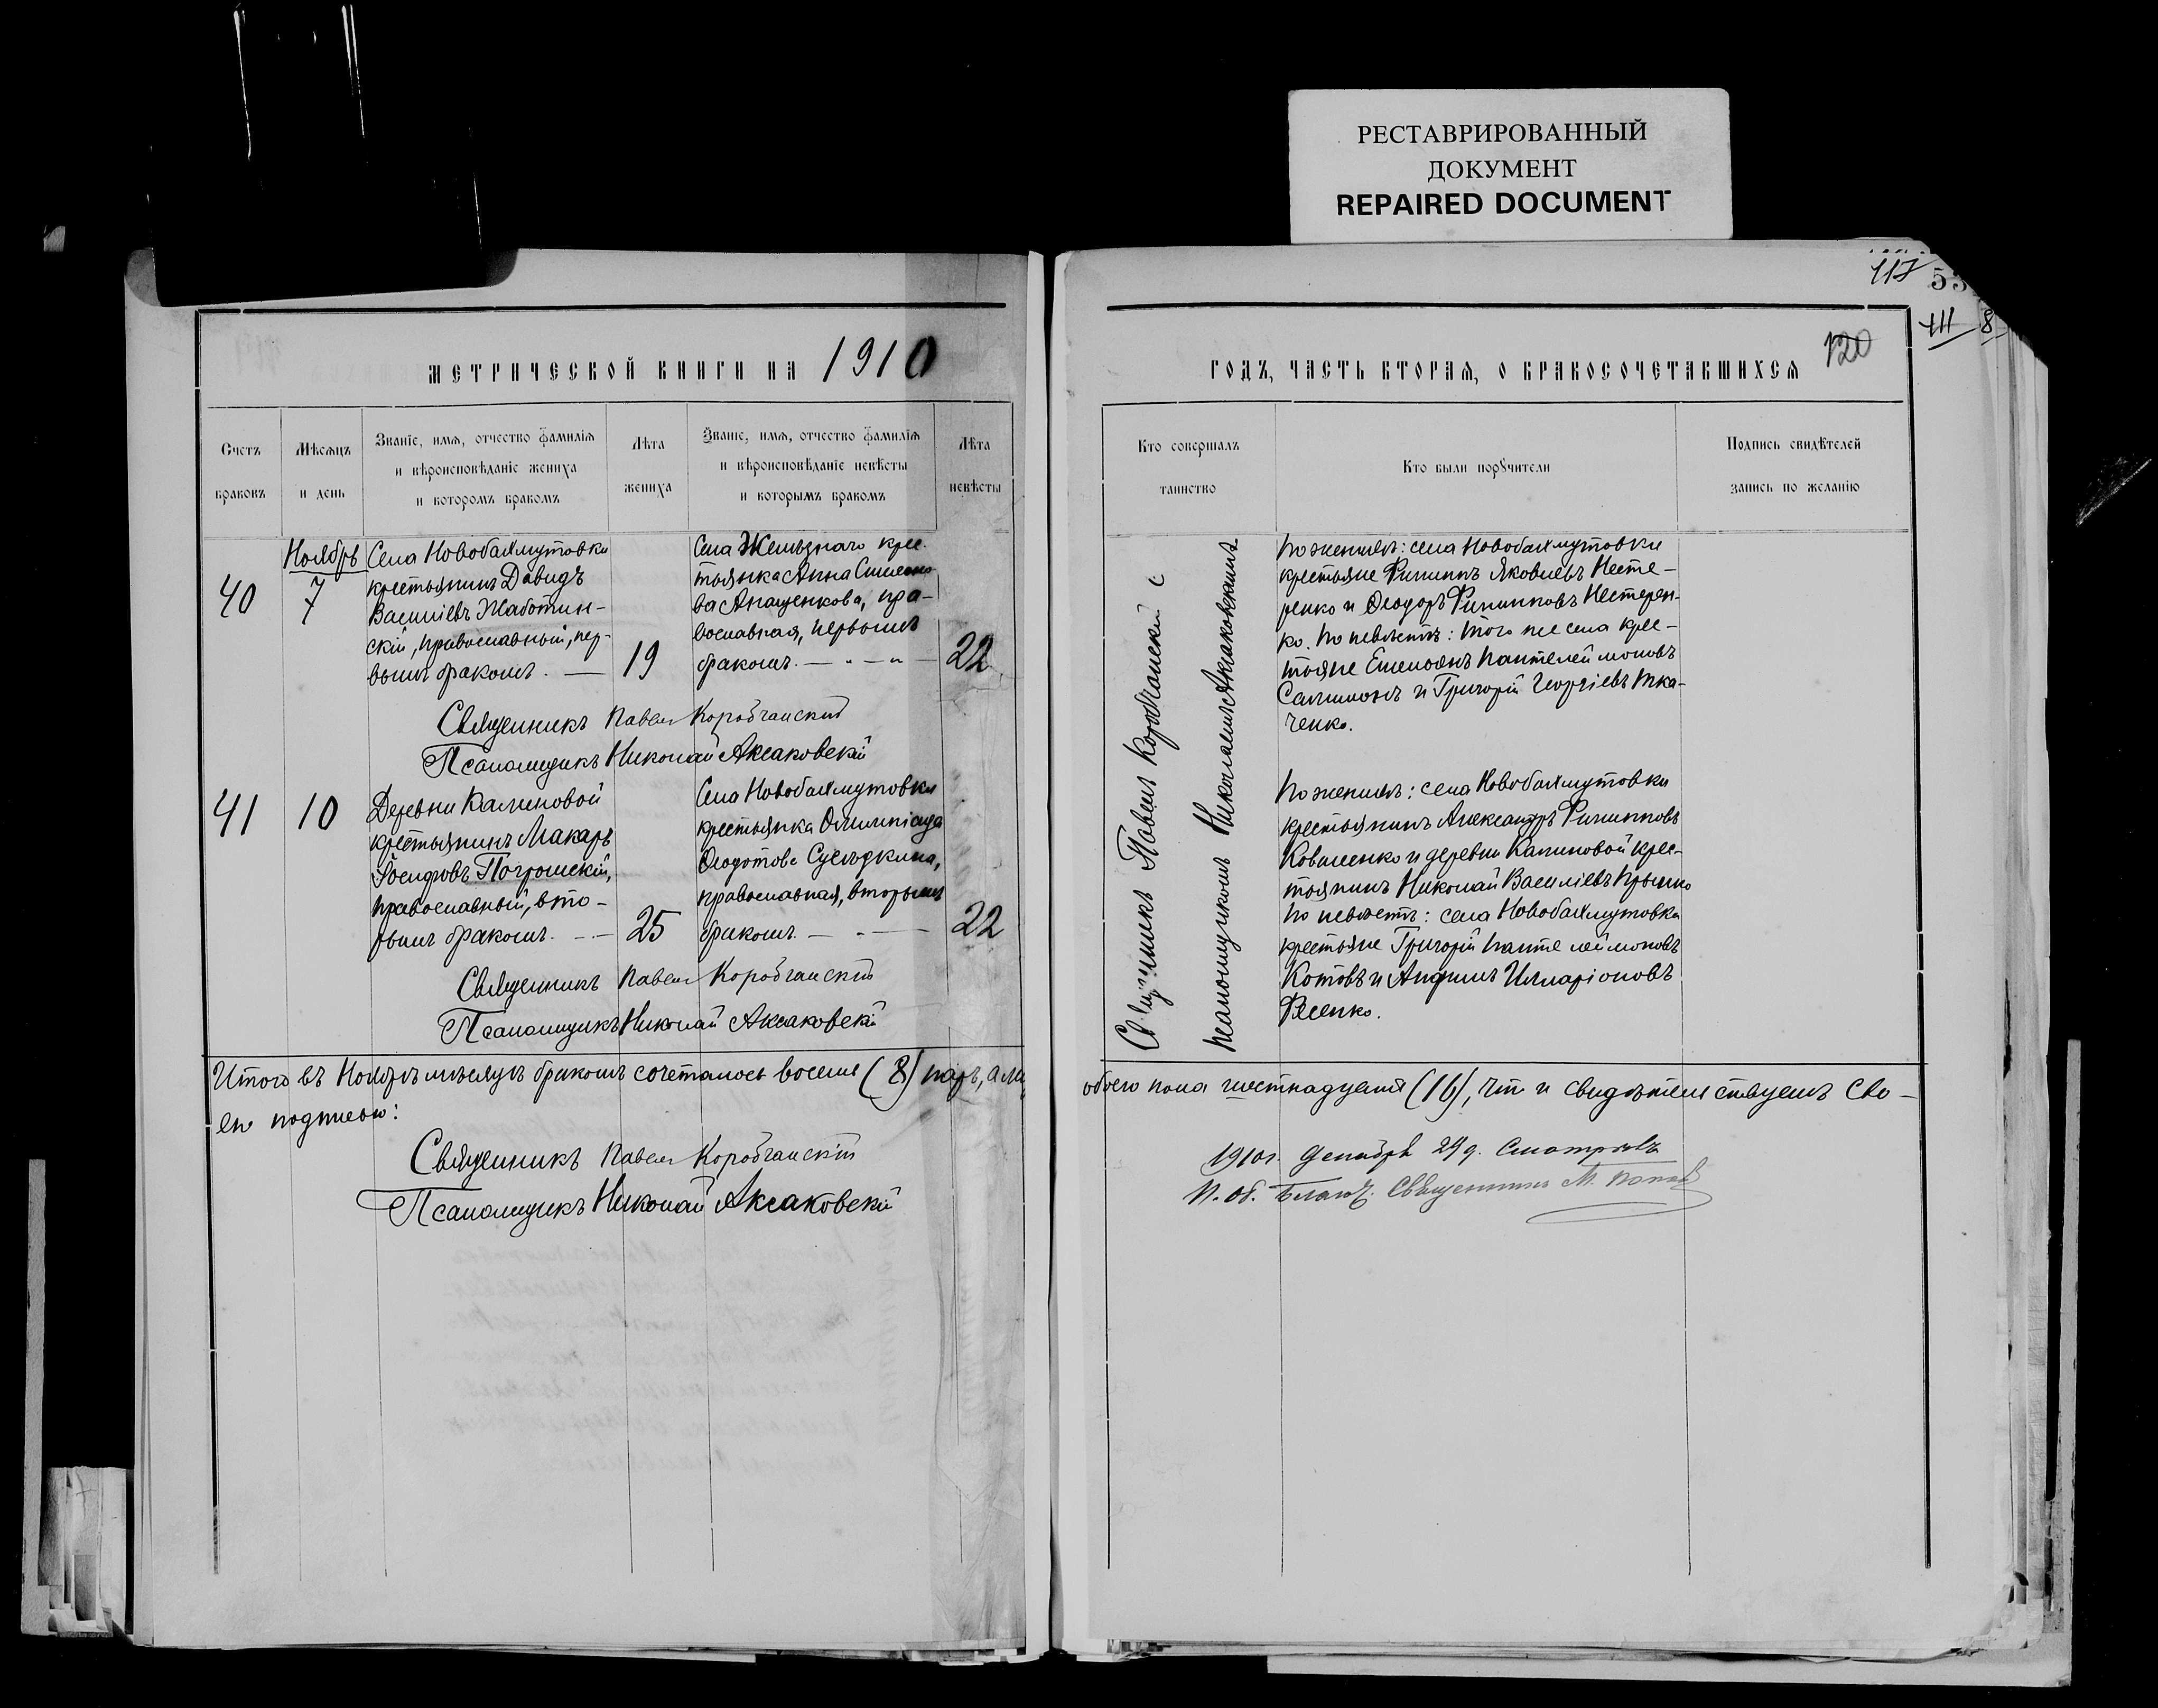 РЕСТАВРИРОВАННЫЙ
ДОКУМЕНТ
REPAIRED DOCUMENT
МЕТРИЧЕСКОЙ КНИГИ НА 1910
Счетъ
браковъ
Мѣсяцъ
и день
Званіе, имя, отчество фамилія
и вѣроисповѣданіе жениха
и которомъ бракомъ
Лѣта
жениха
Званіе, имя, отчество фамилія
и вѣроисповѣданіе невѣсты
и которымъ бракомъ
Лѣта
невѣсты
40
Ноябрь
7
Села Новобахмутовки
крестьянинъ Давидъ
Василіевъ Жаботин-
скій, православный, пер-
вымъ бракомъ.
19
Села Желѣзнаго крес-
тьянка Анна Симеоно
ва Анащенкова, пра-
вославная, первымъ
бракомъ.
22
Священникъ Павелъ Коробчанскій
Псаломщикъ Николай Аксаковскій
41
10
Деревни Калиновой
крестьянинъ Макарь
Іосифовъ Погромскій,
православный, вто-
рымъ бракомъ.
25
Села Новобахмутовки
крестьянка Олимпіада
Ѳеодотова
православная, вторымъ
бракомъ.
22
Священникъ Павелъ Коробчанскій
Псаломщикъ Николай Аксаковскій
Итого въ Ноябрѣ мѣсяцѣ бракомъ сочеталось восемь (8) паръ, а
ею подписью:
Священникъ Павелъ Коробчанскій
Псаломщикъ Николай Аксаковскій
117
53
111 8
120
ГОДЪ, ЧАСТЬ ВТОРАЯ, О БРАКОСОЧЕТАВШИХСЯ
Кто совершалъ
таинство
Кто были поручители
Подпись свидѣтелей
запись по желанію
Священникъ Павелъ Коробчанскій с
псаломщикомъ Николаемъ Аксаковскимъ
По женихѣ: села Новобахмутовки
крестьяне Филиппъ Яковлевъ Несте-
ренко и Ѳеодоръ Филипповъ Нестерен-
ко. По невѣстѣ: того же села крес-
тьяне Емельянъ Пантелеймоновъ
и Григорій Георгіевъ Тка-
ченко.
По женихѣ: села Новобахмутовки
крестьянинъ Александръ Филипповъ
Коваленко и деревни Калиновой крес-
тьянинъ Николай Василіевъ
По невѣстѣ: села Новобахмутовки
крестьяне Григорій Пантелеймоновъ
Котовъ и Илларіоновъ
обоего пола шестнадцать (16), что и свидѣтельствуемъ сво-
1910г. Декабря 29 д. Смотрѣлъ
И. об. Благоч. Священникъ М. Поповъ